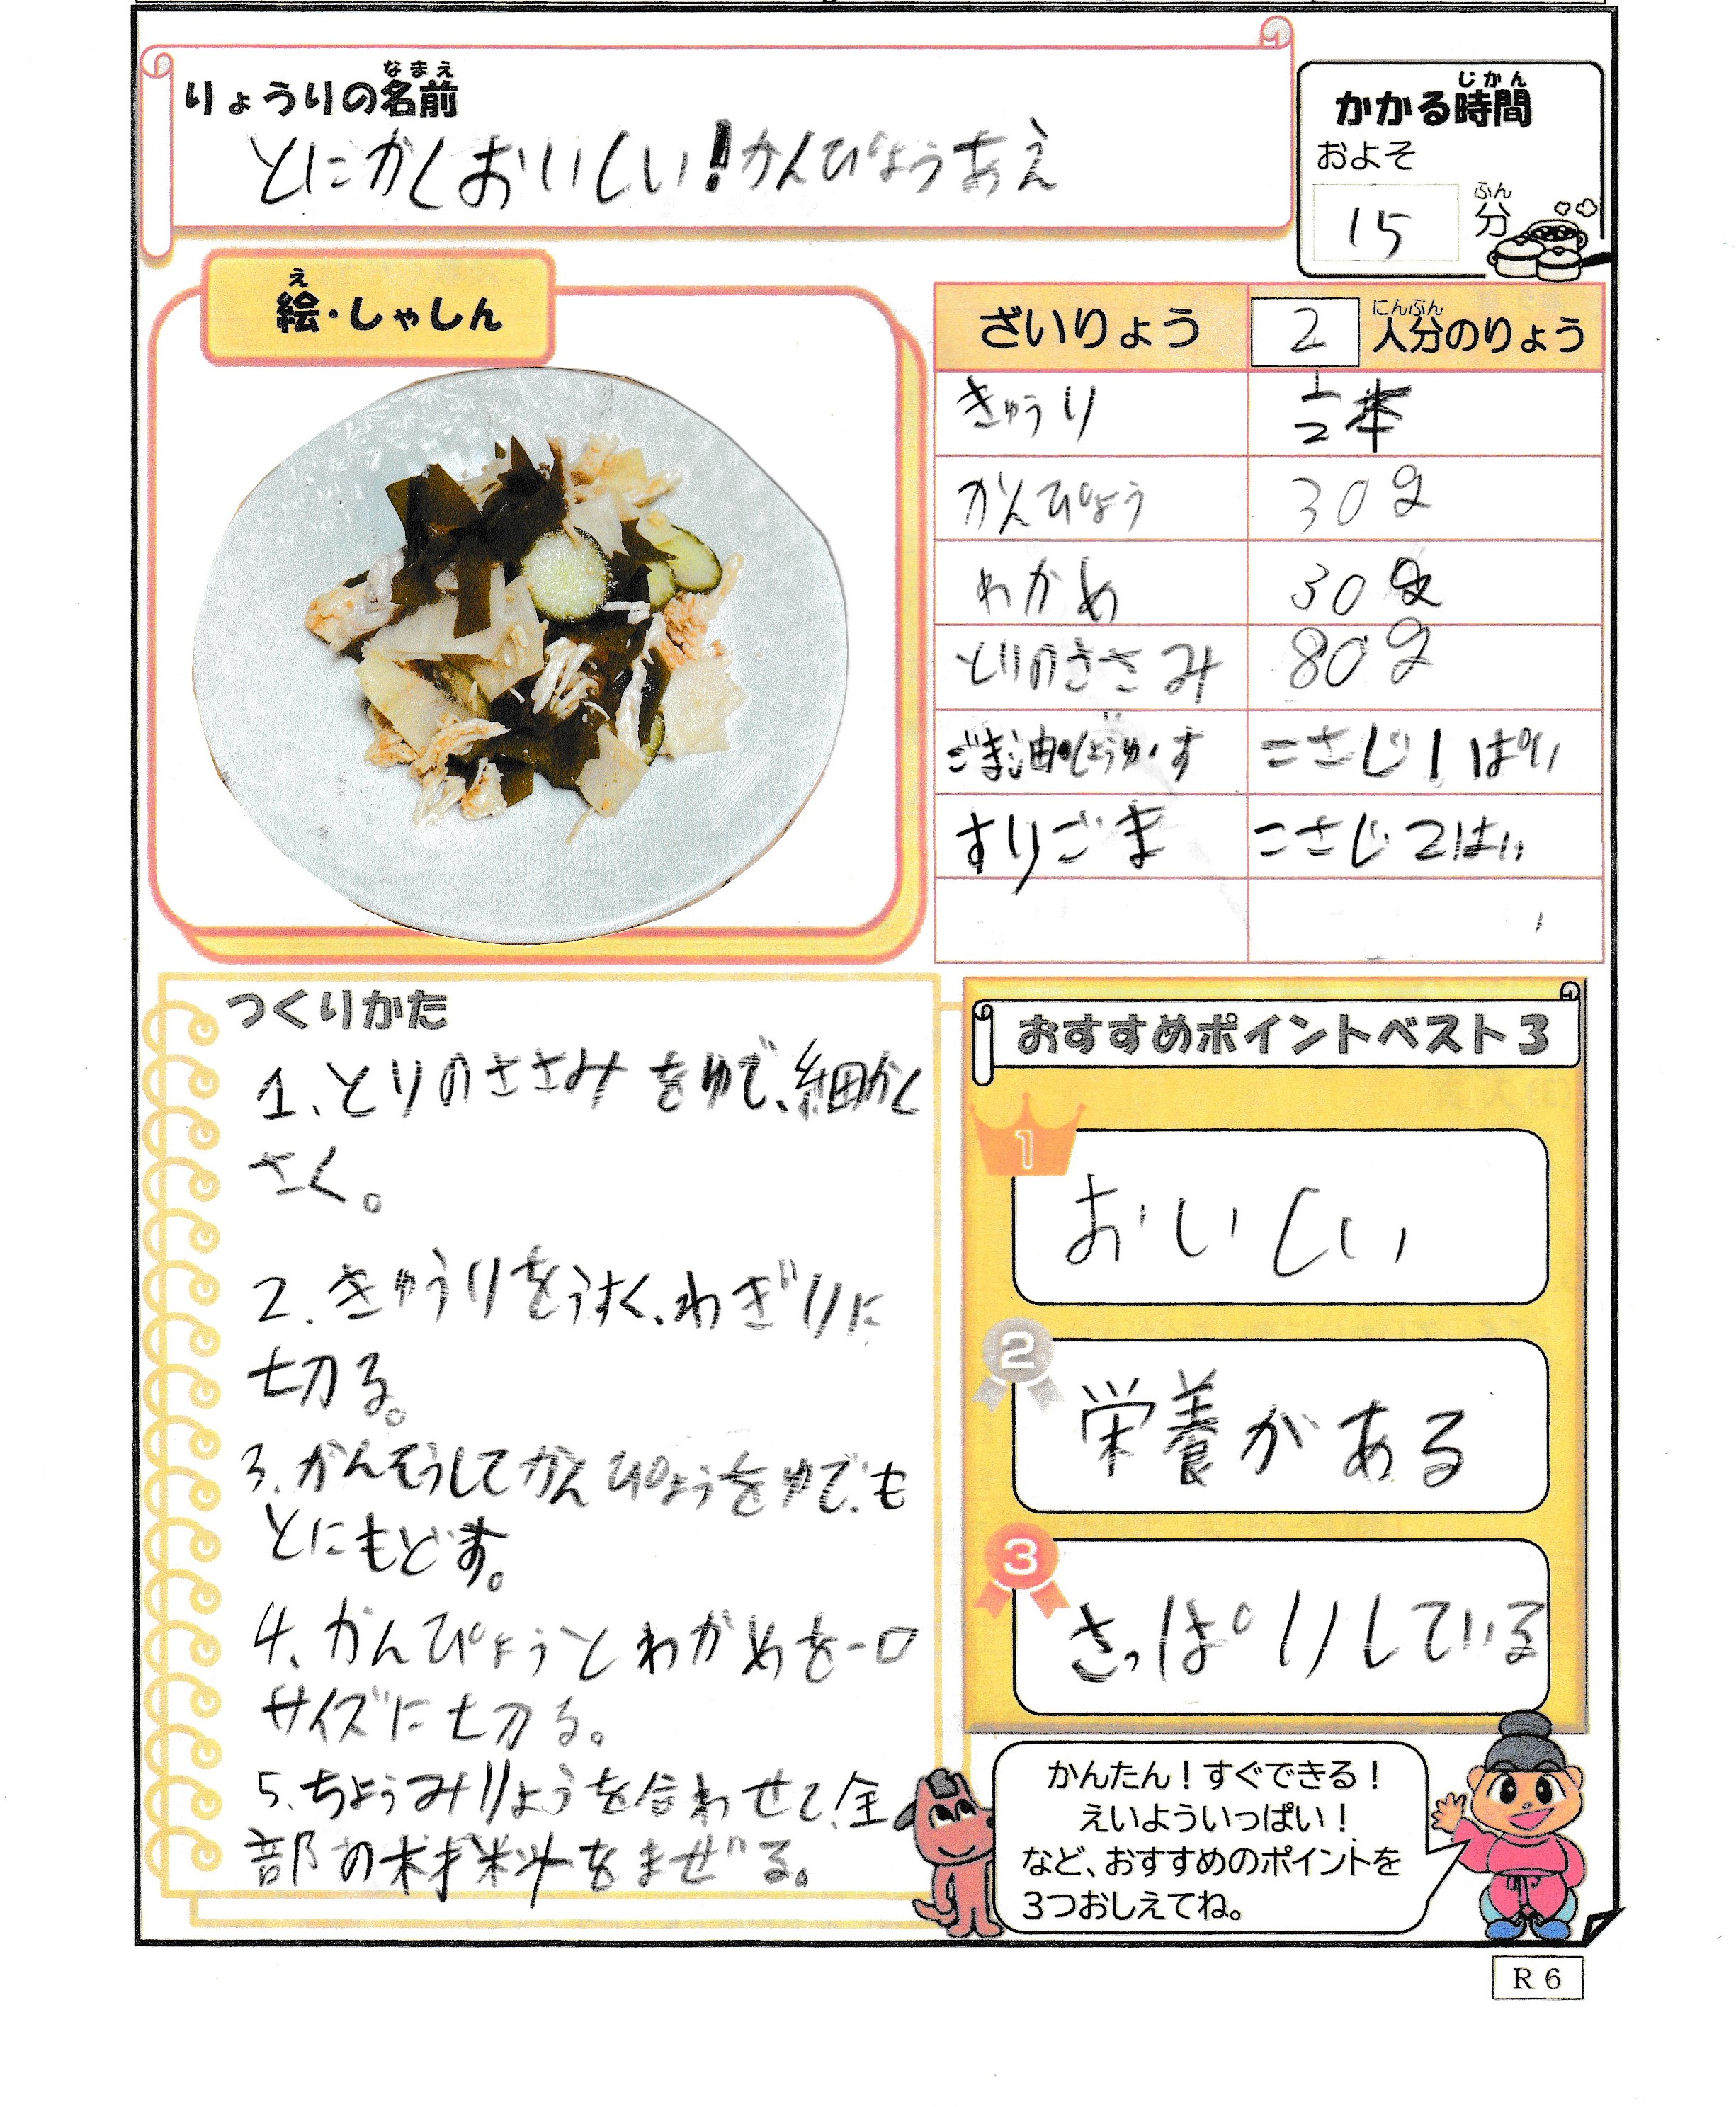 りょうりの名前
なまえ
とにかくおいしい!かんぴょうあえ
かかる時間
じかん
およそ
15分
ふん
絵・しゃしん
え
ざいりょう 2人分のりょう
にんぶん
きゅうり 1/2本
かんぴょう 30g
わかめ 30g
とりのささみ 80g
ごま油・しょうゆ・す こさじ1ぱい
すりごま こさじ2はい
つくりかた
1、とりのささみをゆで、細かく
さく。
2.きゅうりをうすく、わぎりに
切る。
3.かんそうしてかんぴょうをゆで、も
とにもどす。
4、かんぴょうとわかめを一口
サイズに切る。
5、ちょうみりょうを合わせて、全
部の材料をまぜる。
おすすめポイントベスト3
1
おいしい
2
栄養がある
3
さっぱりしている
かんたん!すぐできる!
えいよういっぱい!
など、おすすめのポイントを
3つおしえてね。
R6